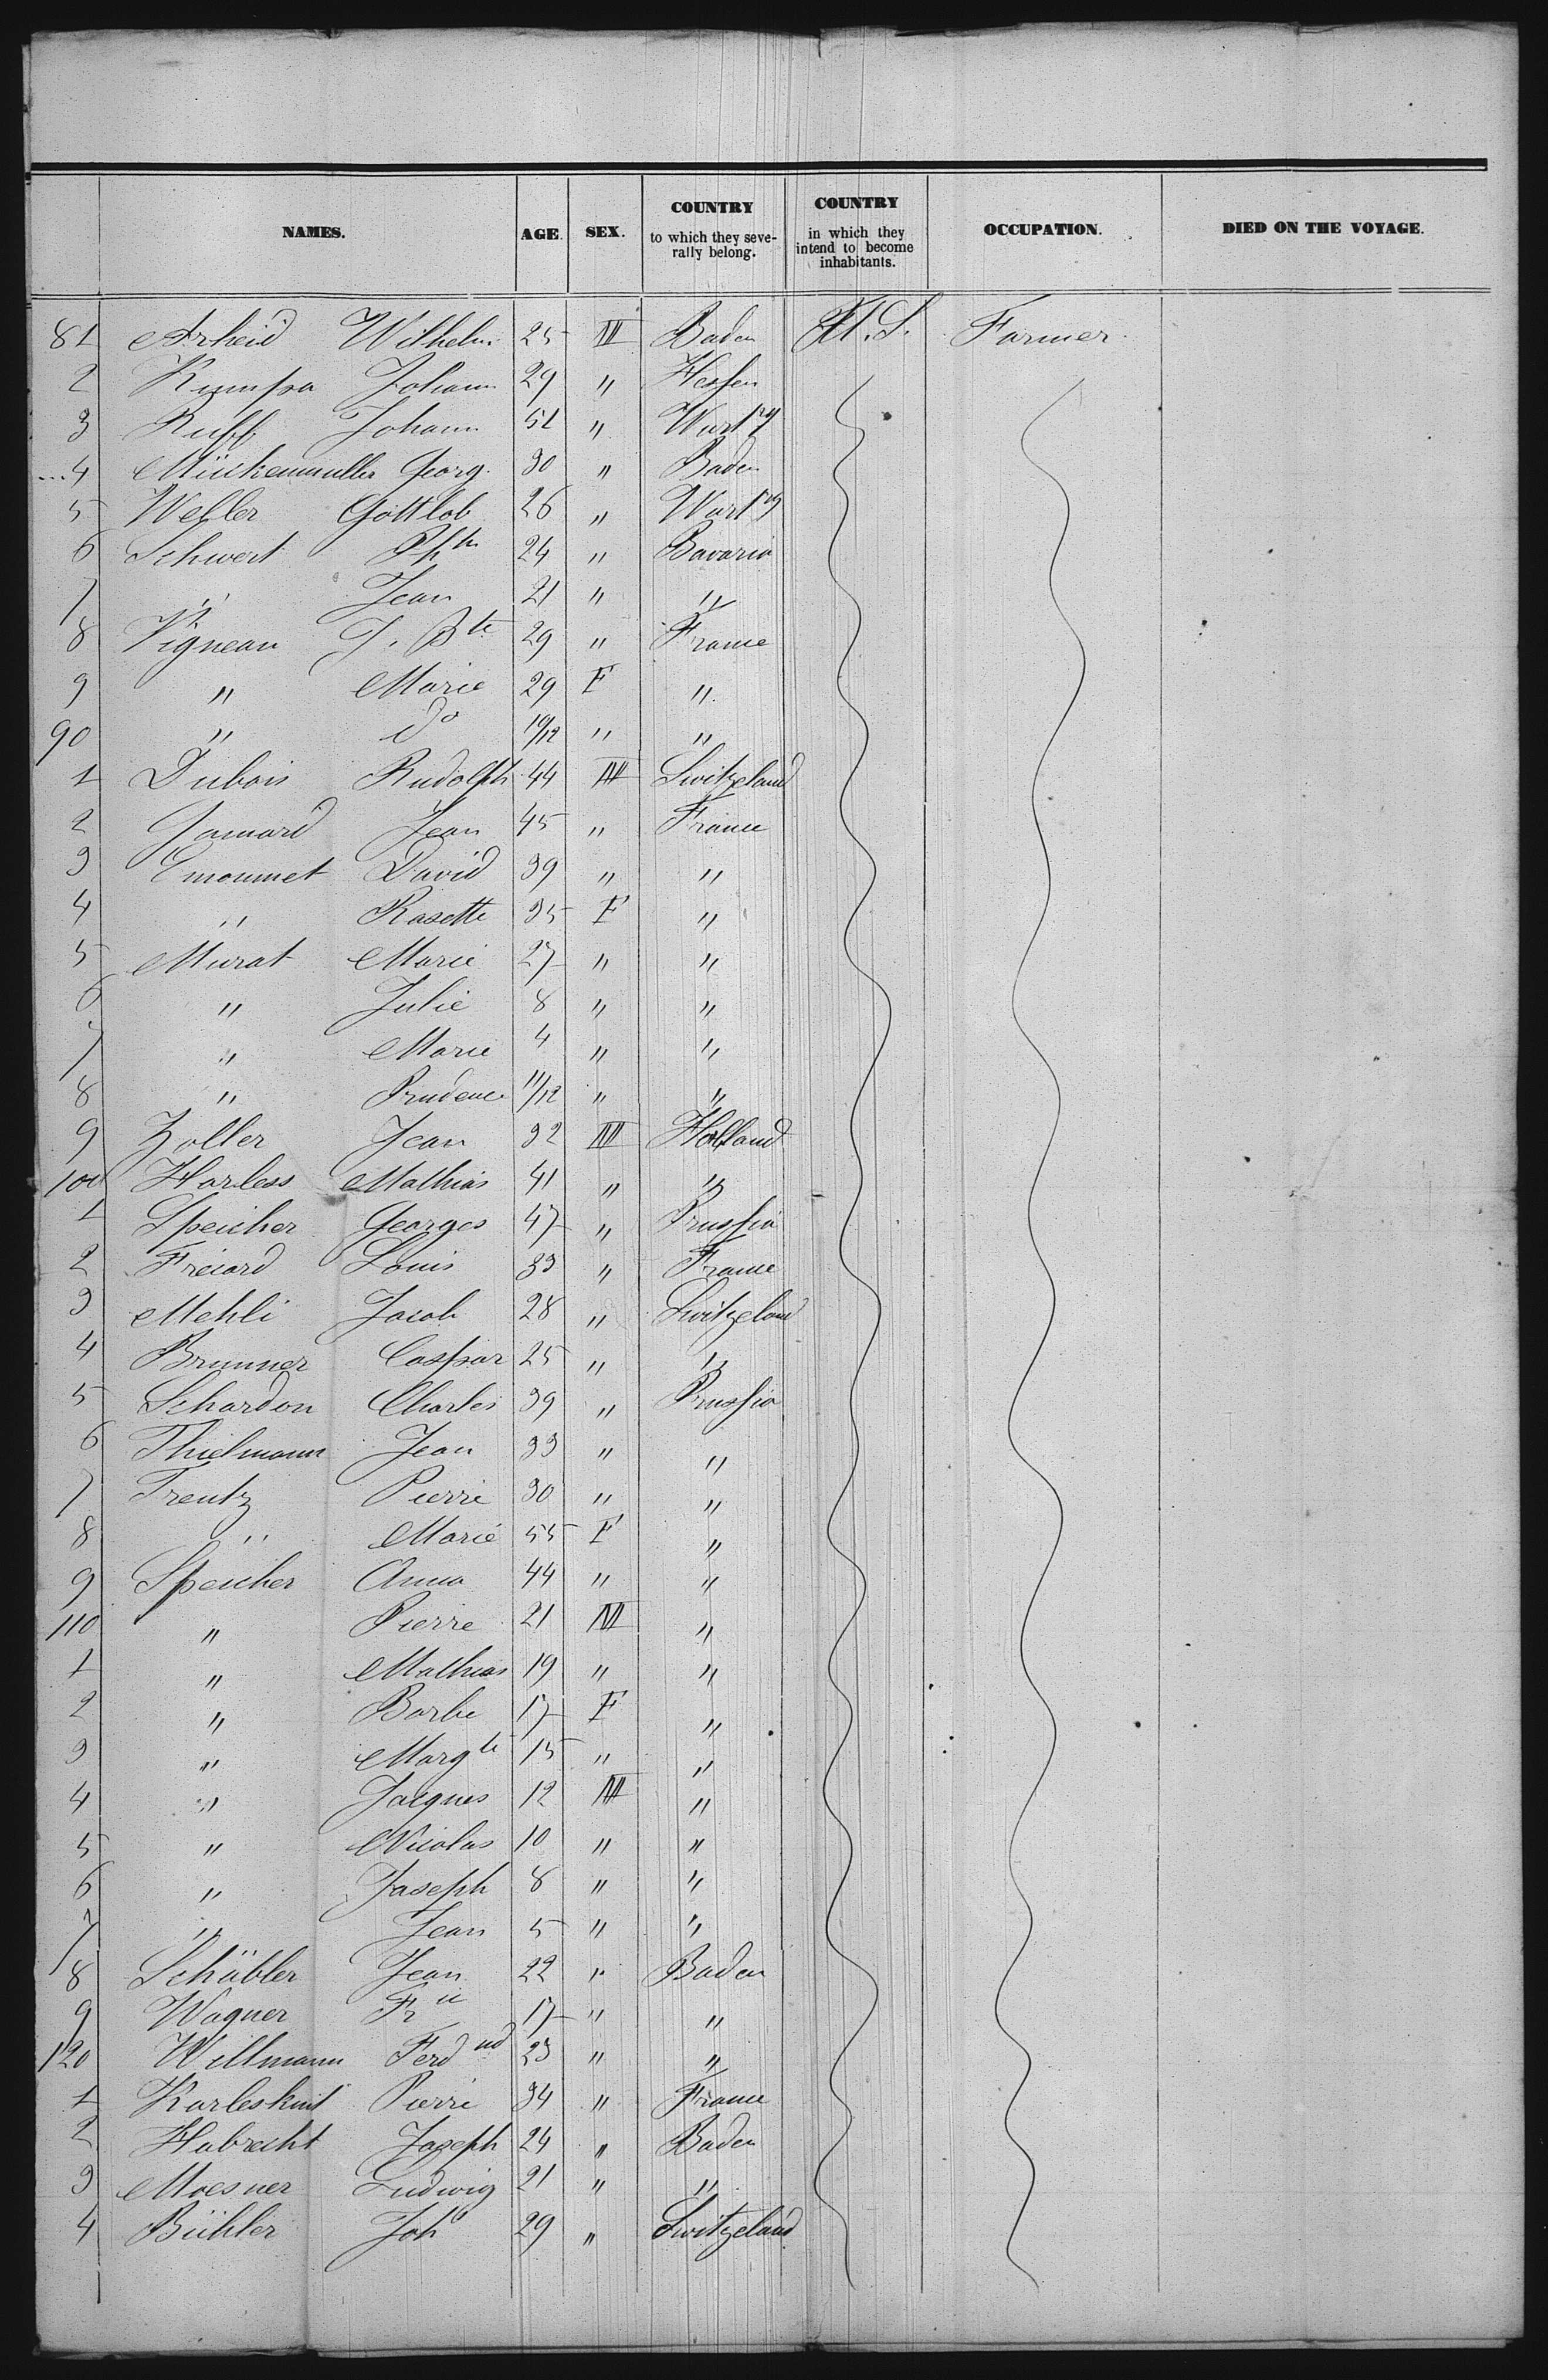 NAMES. AGE. SEX. COUNTRY to which they severally belong. COUNTRY in which they intend to become inhabitants. OCCUPATION. DIED ON THE VOYAGE.
81 Arheid Wilhelm 25 M Baden U.S. Farmer.
2 Johann 29 " Hessen
3 Ruff Johann 51 " Wurtbg
4 Mückenmuller Georg. 30 " Baden
5 Weller Gottlob 26 " Wurtbg
6 Schwert 24 " Bavaria
7 " Jean 21 " "
8 Vigneau J. Bte 29 " France
9 " Marie 29 F "
90 " do 10/12 " "
1 Dubois Rudolph 44 M Switzeland
2 Jamard Jean 45 " France
3 Emonnet David 39 " "
4 " Rosette 35 F "
5 Murat Marie 27 " "
6 " Julie 8 " "
7 " Marie 4 " "
8 " Prudence 11/12 " "
9 Zoller Jean 32 M Holland
100 Harless Mathias 41 " "
1 Speicher Georges 47 " Prussia
2 Freiard Louis 33 " France
3 Mehli Jacob 28 " Switzeland
4 Brunner Caspar 25 " "
5 Schardon Charles 39 " Prussia
6 Thielmann Jean 33 " "
7 Trentz Pierre 30 " "
8 " Marie 55 F "
9 Speicher Anna 44 " "
110 " Pierre 21 M "
1 " Mathias 19 " "
2 " Barbe 17 F "
3 " Margte 15 " "
4 " Jacques 12 M "
5 " Nicolas 10 " "
6 " Joseph 8 " "
7 " Jean 5 " "
8 Schäbler Jean 22 " Baden
9 Wagner 17 " "
120 Willmann Ferdnd 23 " "
1 Karleskint Pierre 34 " France
2 Habrecht Joseph 24 " Baden
3 Moesner Ludwig 21 " "
4 Bühler Joh 29 " Switzeland